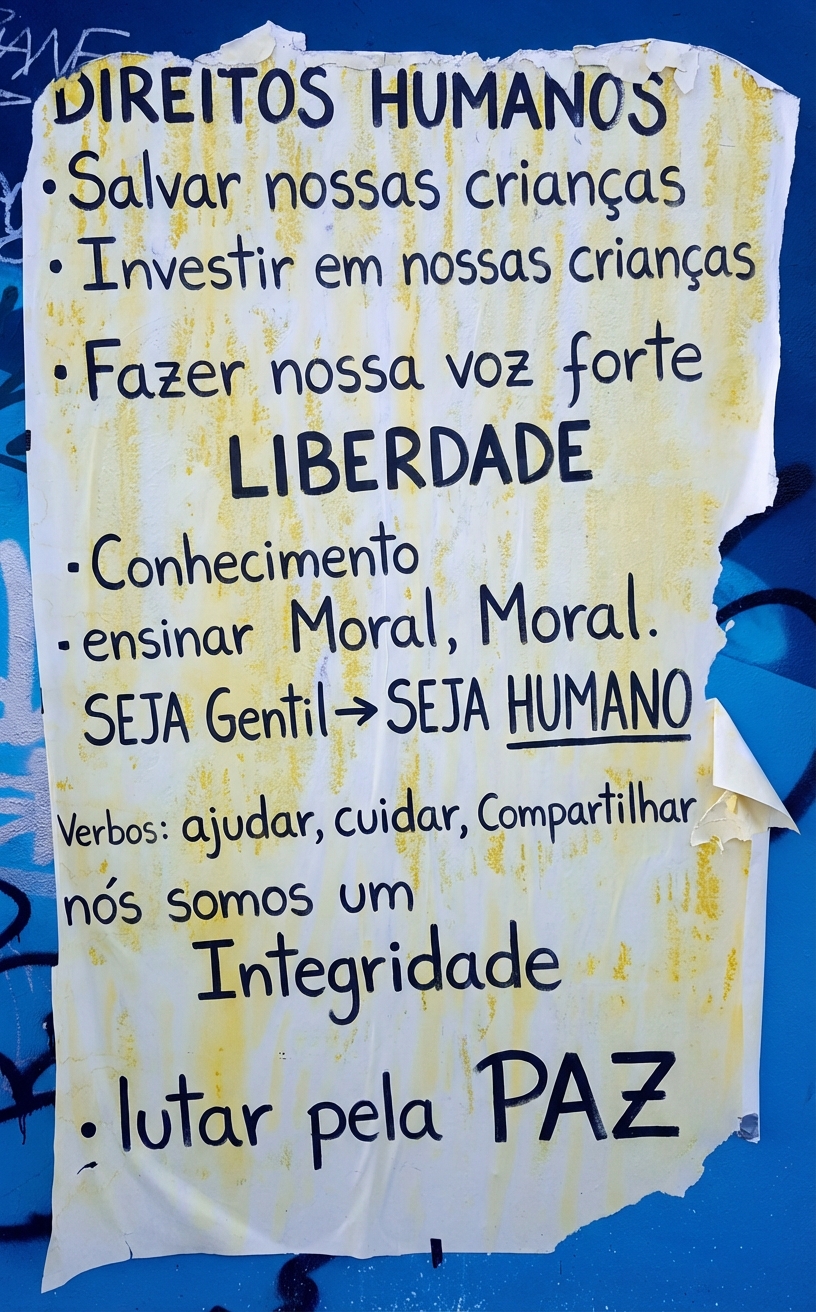 DIREITOS HUMANOS
• Salvar nossas crianças
• Investir em nossas crianças
• Fazer nossa voz forte
LIBERDADE
• Conhecimento
• ensinar Moral, Moral.
SEJA Gentil → SEJA HUMANO
Verbos: ajudar, cuidar, Compartilhar
nós somos um
Integridade
• lutar pela PAZ